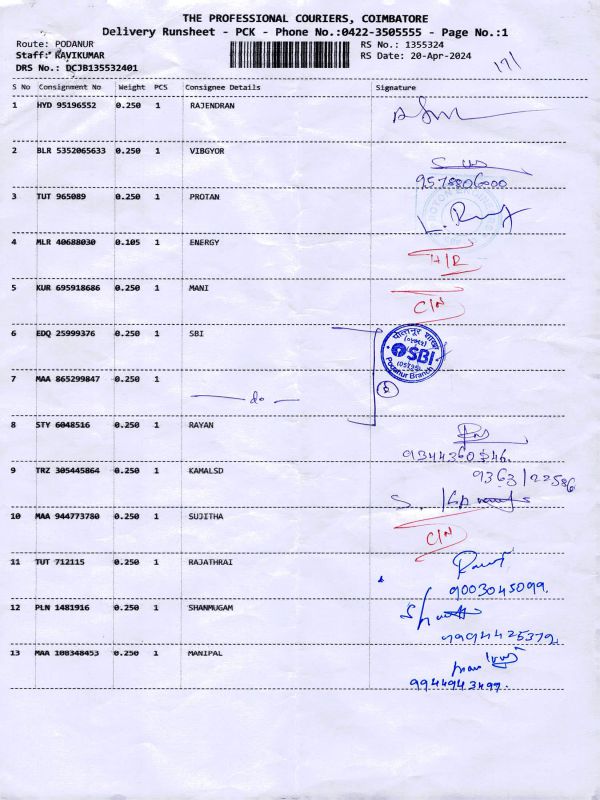 THE PROFESSIONAL COURIERS, COIMBATORE
Delivery Runsheet - PCK - Phone No.:0422-3505555 - Page No.:1
Route: PODANUR RS No.: 1355324
Staff: RAVIKUMAR RS Date: 20-Apr-2024
DRS No.: DCJB135532401
171
S No Consignment No Weight PCS Consignee Details Signature
1 HYD 95196552 0.250 1 RAJENDRAN
2 BLR 5352065633 0.250 1 VIBGYOR
9578806000
3 TUT 965089 0.250 1 PROTAN
4 MLR 40688030 0.105 1 ENERGY
5 KUR 695918686 0.250 1 MANI C/N
6 EDQ 25999376 0.250 1 SBI
SBI
Podanur Branch
7 MAA 865299847 0.250 1
do
8 STY 6048516 0.250 1 RAYAN
9344360546.
9 TRZ 305445864 0.250 1 KAMALSD 9363122586
10 MAA 944773780 0.250 1 SUJITHA C/N
11 TUT 712115 0.250 1 RAJATHRAI
9003045099.
12 PLN 1481916 0.250 1 SHANMUGAM
9994425379.
13 MAA 108348453 0.250 1 MANIPAL
9944943497.